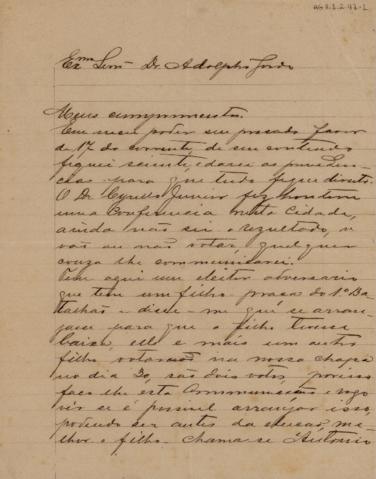 AG 8.1.2.42-1
Exmo Snr Dr. Adolpho Gordo
Meus cumprimentos.
Em meu poder seu presado favor
de 17 do corrente, de seu contendo
fiquei sciente, e darei as providen-
cias para que tudo fique direito.
O Dr. Cyrillo Junior fez hontem
uma Conferencia nesta Cidade,
ainda não sei o rezultado, si
vão ou não votar, qualquer
couza lhe communicarei.
Tem aqui um eleitor adversario
que tem um filho praça do 1º Ba-
talhão e disse-me que se arran-
jasse para que o filho tivesse
baixa, elle e mais um outro
filho votarão na nossa chapa
no dia 30, são dois votos, por isso
faço lhe esta Communicação e rogo
vir se é possivel arranjar isso,
podendo ser antes da eleição, me-
lhor o filho chama-se Antonio